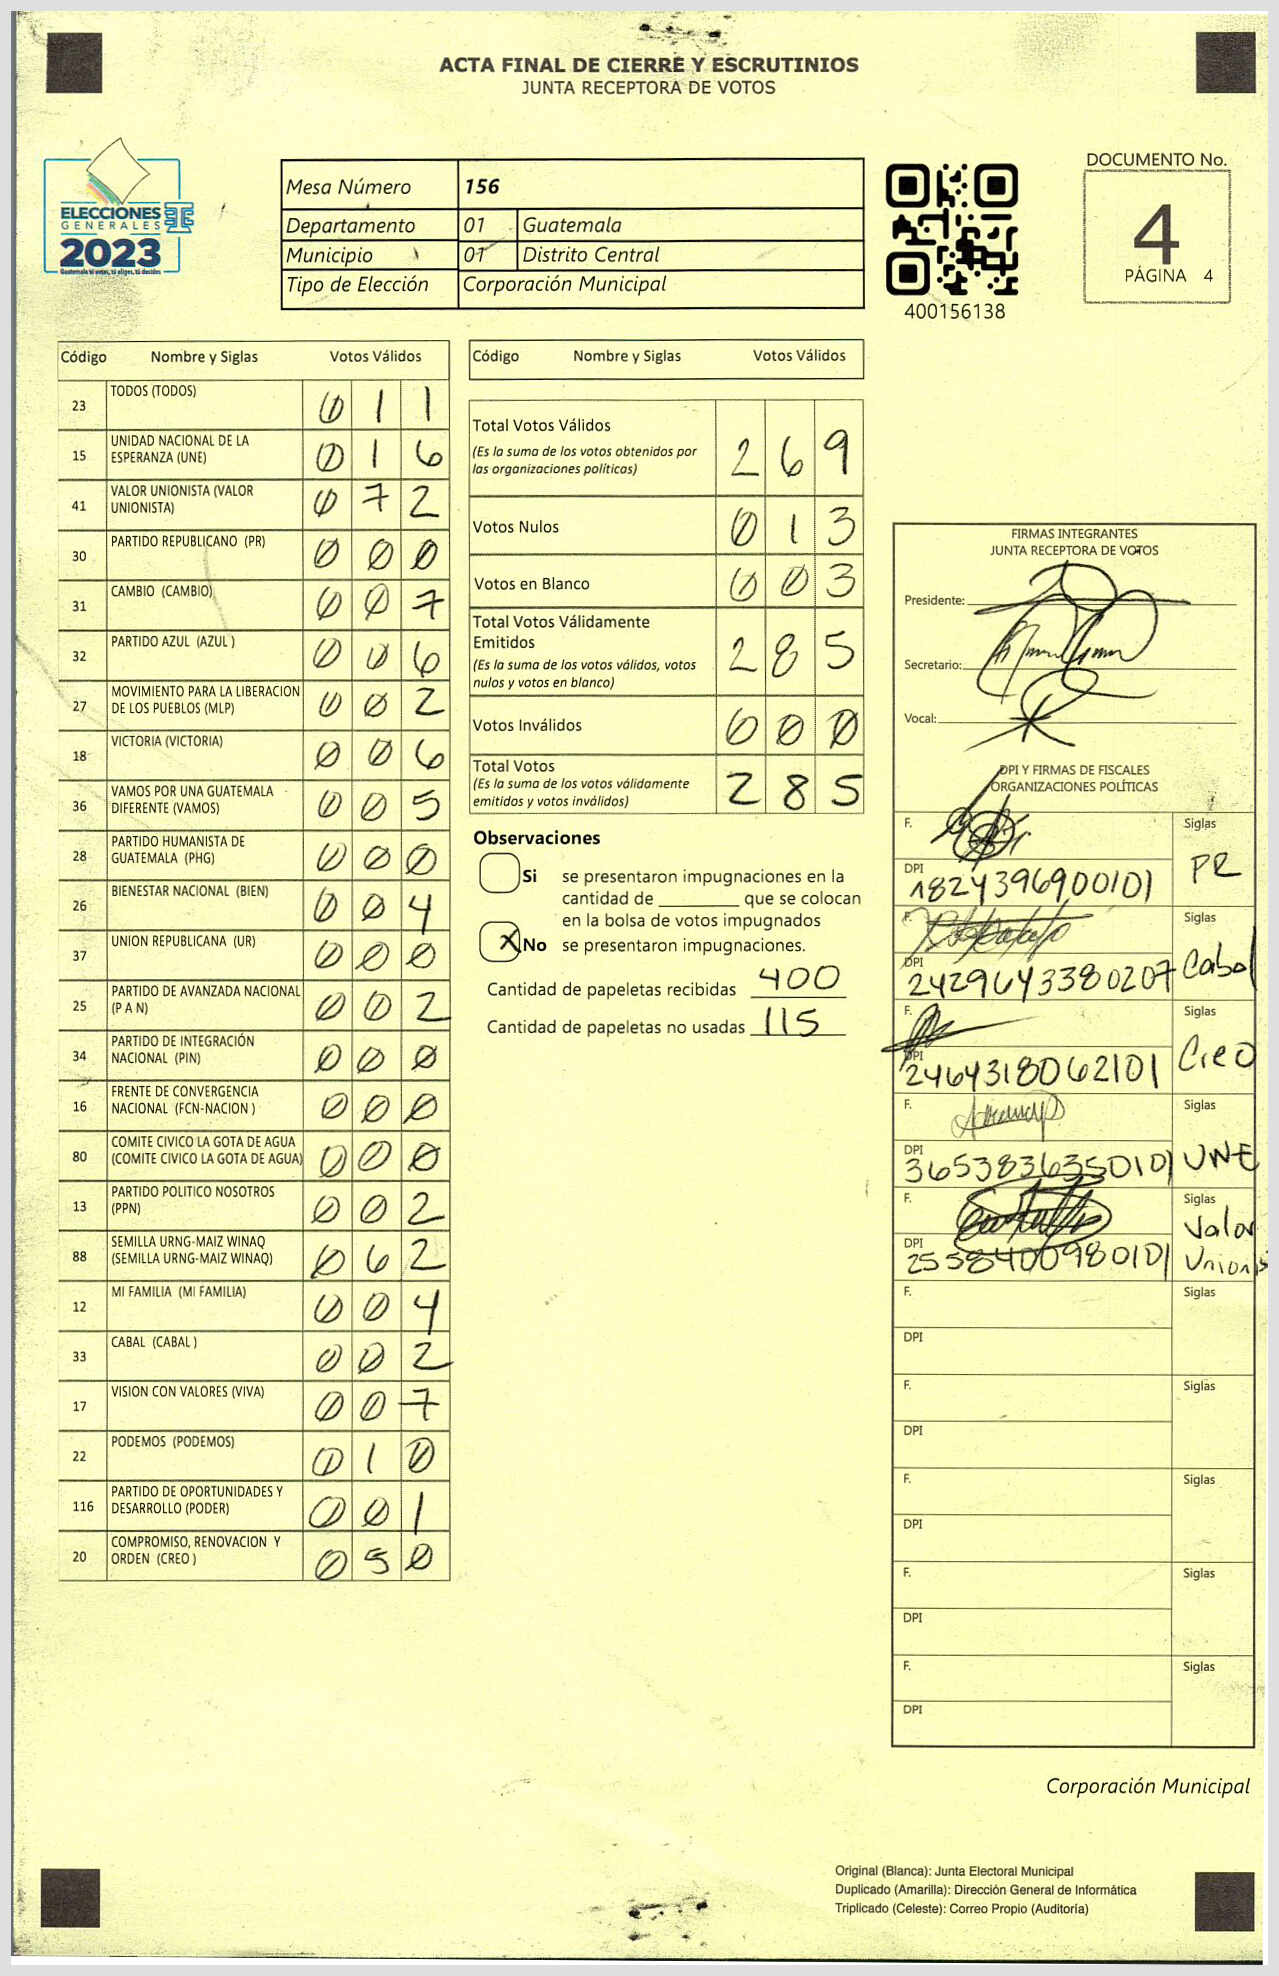 ACTA FINAL DE CIERRE Y ESCRUTINIOS
JUNTA RECEPTORA DE VOTOS
ELECCIONES
GENERALES
2023
Guatemala tú votas, tú eliges, tú decides
Mesa Número 156
Departamento 01 Guatemala
Municipio 01 Distrito Central
Tipo de Elección Corporación Municipal
400156138
DOCUMENTO No.
4
PÁGINA 4
Código Nombre y Siglas Votos Válidos
23 TODOS (TODOS) 0 1 1
15 UNIDAD NACIONAL DE LA ESPERANZA (UNE) 0 1 6
41 VALOR UNIONISTA (VALOR UNIONISTA) 0 7 2
30 PARTIDO REPUBLICANO (PR) 0 0 0
31 CAMBIO (CAMBIO) 0 0 7
32 PARTIDO AZUL (AZUL ) 0 0 6
27 MOVIMIENTO PARA LA LIBERACION DE LOS PUEBLOS (MLP) 0 0 2
18 VICTORIA (VICTORIA) 0 0 6
36 VAMOS POR UNA GUATEMALA DIFERENTE (VAMOS) 0 0 5
28 PARTIDO HUMANISTA DE GUATEMALA (PHG) 0 0 0
26 BIENESTAR NACIONAL (BIEN) 0 0 4
37 UNION REPUBLICANA (UR) 0 0 0
25 PARTIDO DE AVANZADA NACIONAL (P A N) 0 0 2
34 PARTIDO DE INTEGRACIÓN NACIONAL (PIN) 0 0 0
16 FRENTE DE CONVERGENCIA NACIONAL (FCN-NACION ) 0 0 0
80 COMITE CIVICO LA GOTA DE AGUA (COMITE CIVICO LA GOTA DE AGUA) 0 0 0
13 PARTIDO POLITICO NOSOTROS (PPN) 0 0 2
88 SEMILLA URNG-MAIZ WINAQ (SEMILLA URNG-MAIZ WINAQ) 0 6 2
12 MI FAMILIA (MI FAMILIA) 0 0 4
33 CABAL (CABAL ) 0 0 2
17 VISION CON VALORES (VIVA) 0 0 7
22 PODEMOS (PODEMOS) 0 1 0
116 PARTIDO DE OPORTUNIDADES Y DESARROLLO (PODER) 0 0 1
20 COMPROMISO, RENOVACION Y ORDEN (CREO ) 0 5 0
Código Nombre y Siglas Votos Válidos
Total Votos Válidos 2 6 9
(Es la suma de los votos obtenidos por
las organizaciones políticas)
Votos Nulos 0 1 3
Votos en Blanco 0 0 3
Total Votos Válidamente
Emitidos 2 8 5
(Es la suma de los votos válidos, votos
nulos y votos en blanco)
Votos Inválidos 0 0 0
Total Votos 2 8 5
(Es la suma de los votos válidamente
emitidos y votos inválidos)
Observaciones
Si se presentaron impugnaciones en la
cantidad de ________ que se colocan
en la bolsa de votos impugnados
X No se presentaron impugnaciones.
Cantidad de papeletas recibidas 400
Cantidad de papeletas no usadas 115
FIRMAS INTEGRANTES
JUNTA RECEPTORA DE VOTOS
Presidente:
Secretario:
Vocal:
DPI Y FIRMAS DE FISCALES
ORGANIZACIONES POLÍTICAS
F. Siglas
DPI 1824396900101 PR
F. Siglas
DPI 2429643380207 Cabal
F. Siglas
DPI 2464318062101 Creo
F. Siglas
DPI 3653836350101 UNE
F. Siglas
DPI 2558400980101 Valor Unionis
F. Siglas
DPI
F. Siglas
DPI
F. Siglas
DPI
F. Siglas
DPI
F. Siglas
DPI
Corporación Municipal
Original (Blanca): Junta Electoral Municipal
Duplicado (Amarilla): Dirección General de Informática
Triplicado (Celeste): Correo Propio (Auditoría)